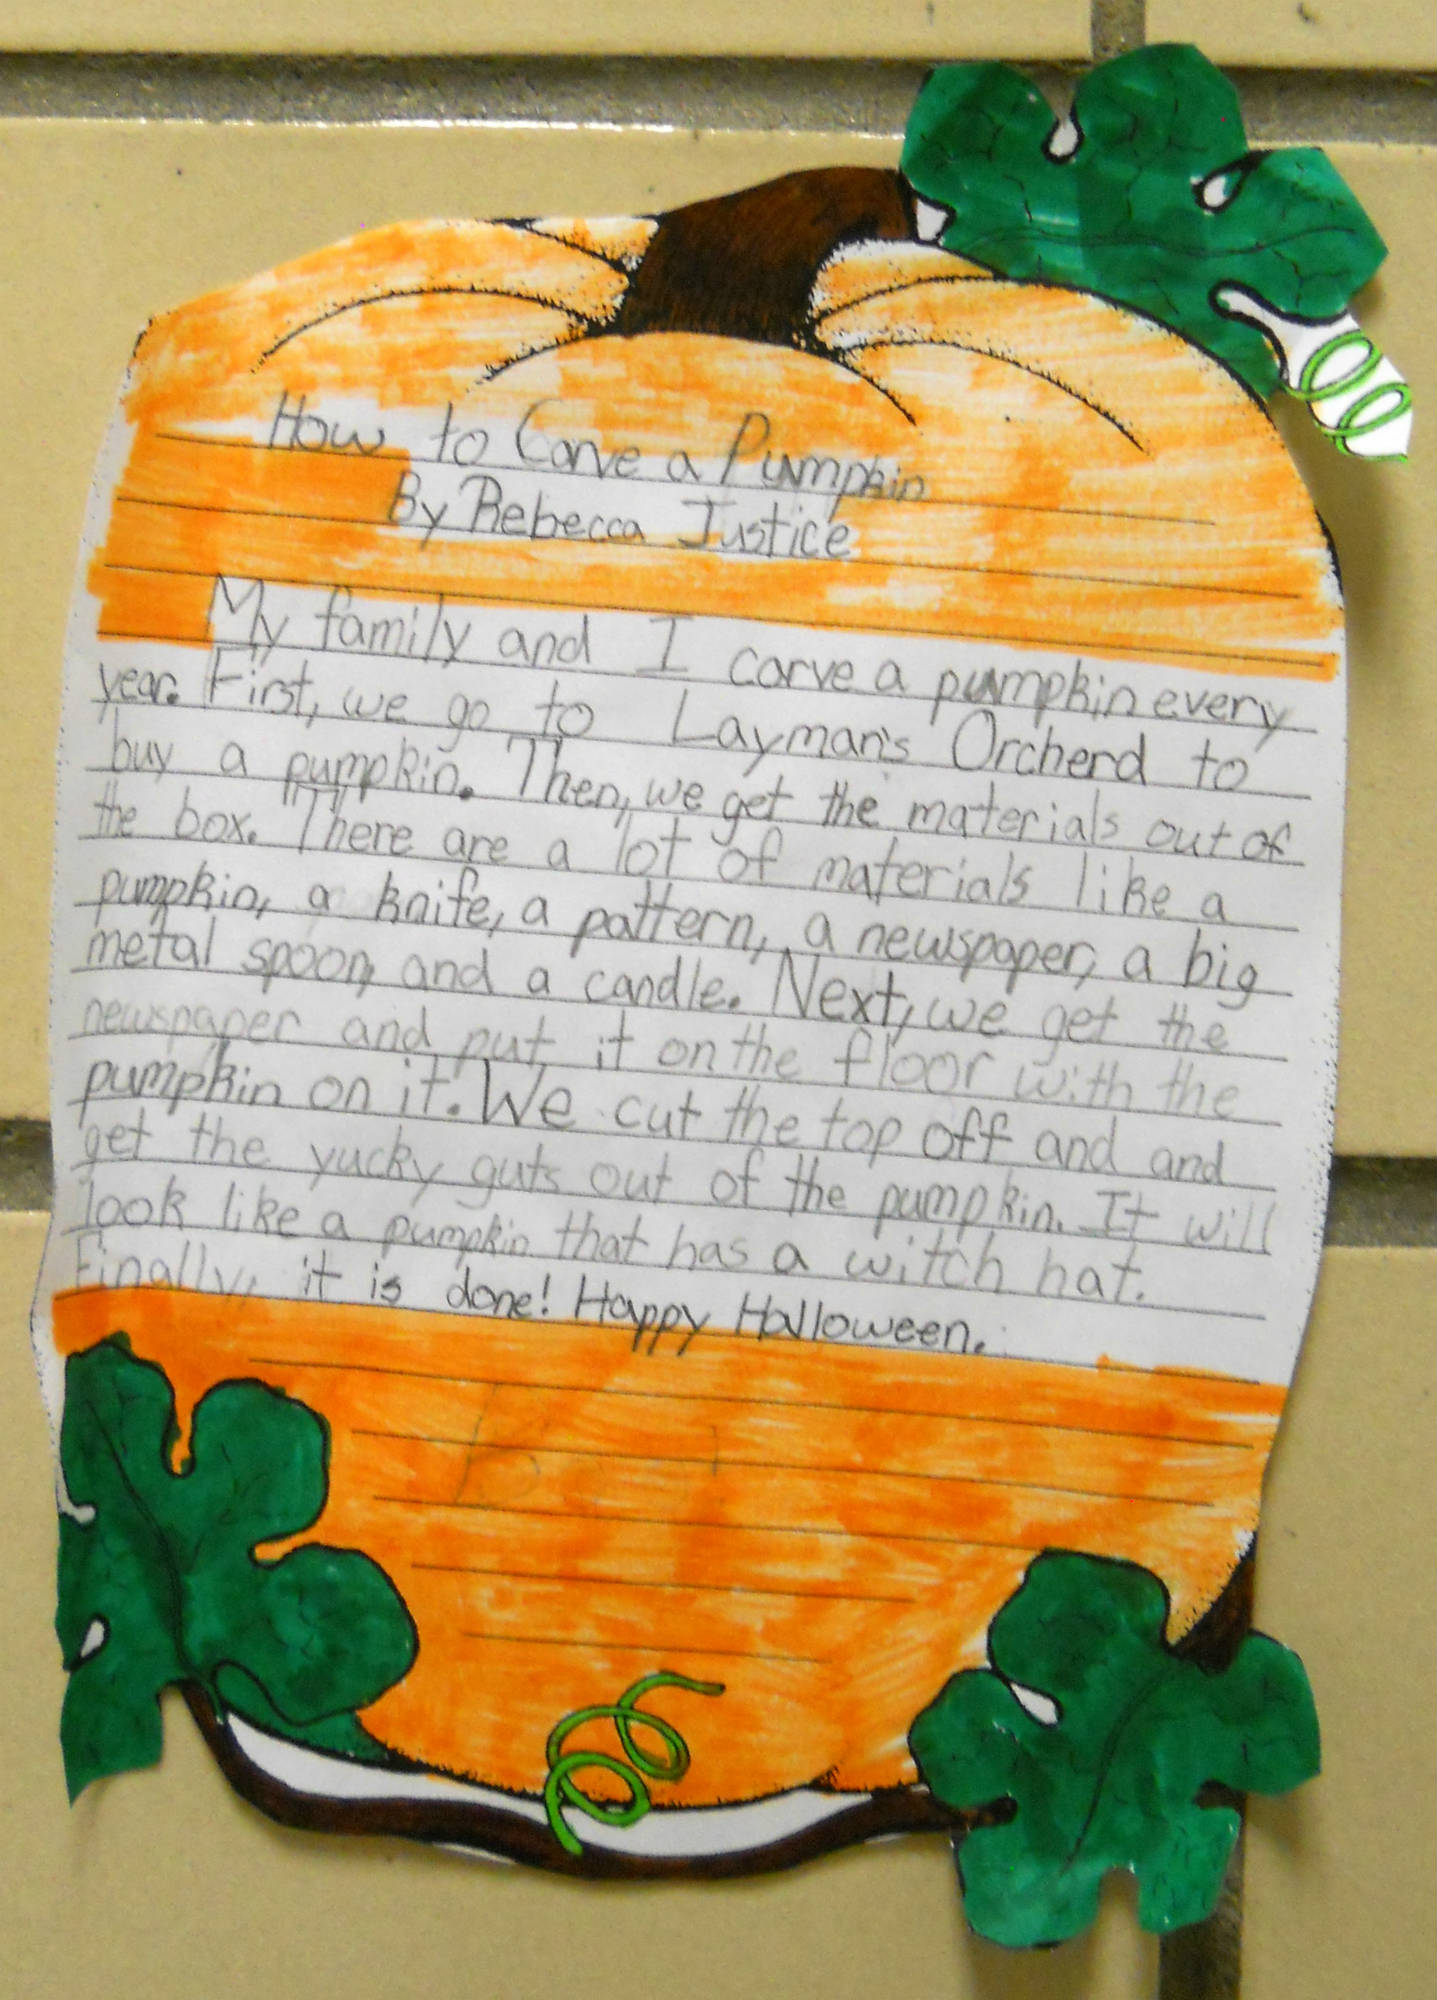 How to Carve a Pumpkin
By Rebecca Justice
My family and I carve a pumpkin every
year. First, we go to Layman's Orcherd to
buy a pumpkin. Then, we get the materials out of
the box. There are a lot of materials like a
pumpkin, a knife, a pattern, a newspaper, a big
metal spoon, and a candle. Next, we get the
newspaper and put it on the floor with the
pumpkin on it. We cut the top off and and
get the yucky guts out of the pumpkin. It will
look like a pumpkin that has a witch hat.
Finally, it is done! Happy Halloween.